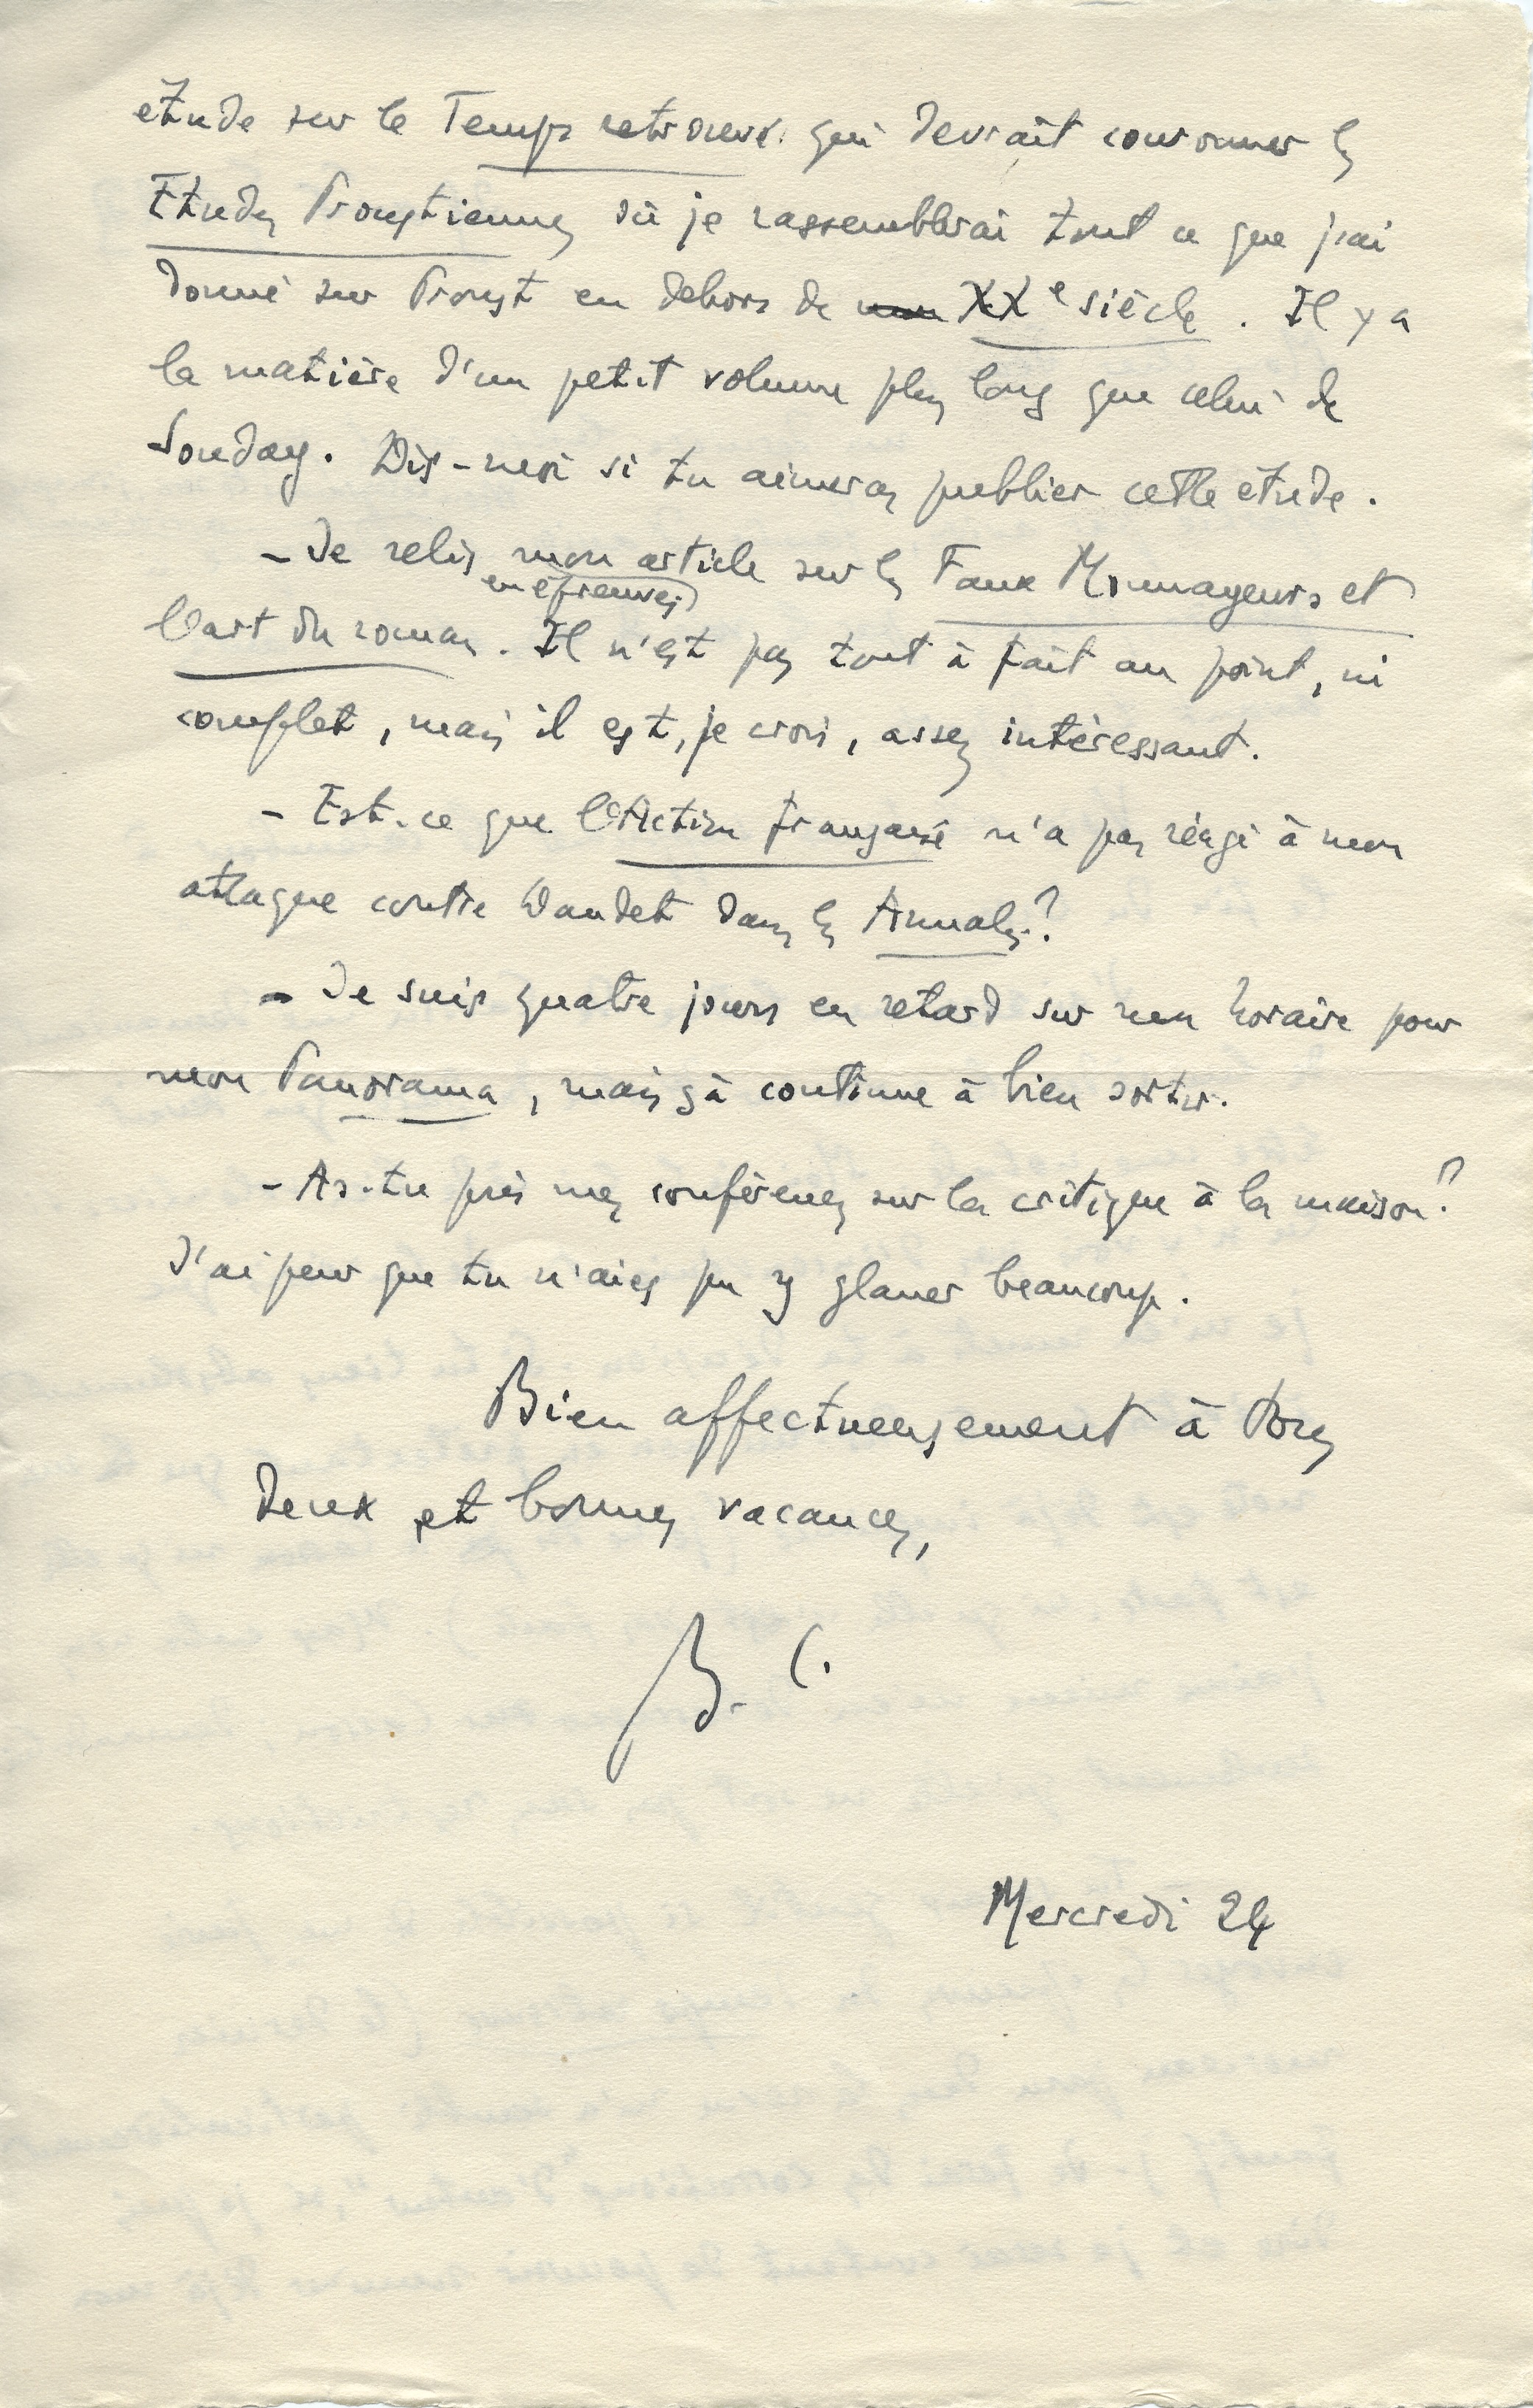 etude sur le Temps retrouvé qui devrait couronner les
Etudes Proustiennes où je rassemblerai tout ce que j'ai
donné sur Proust en dehors de mon XXe siècle. Il y a
la matière d'un petit volume plus long que celui de
Souday. Dis-moi si tu aimeras publier cette etude.
- Je relis mon article sur les Faux Monnayeurs et
en épreuves
l'art du roman. Il n'est pas tout à fait au point, ni
complet, mais il est, je crois, assez intéressant.
- Est-ce que l'Action française n'a pas réagi à mon
attaque contre Daudet dans les Annales?
- Je suis quatre jours en retard sur mon horaire pour
mon Panorama, mais çà continue à bien sortir.
- As-tu pris mes conférences sur la critique à la maison?
J'ai peur que tu n'aies pu y glaner beaucoup.
Bien affectueusement à tous
deux et bonnes vacances,
B. C.
Mercredi 24